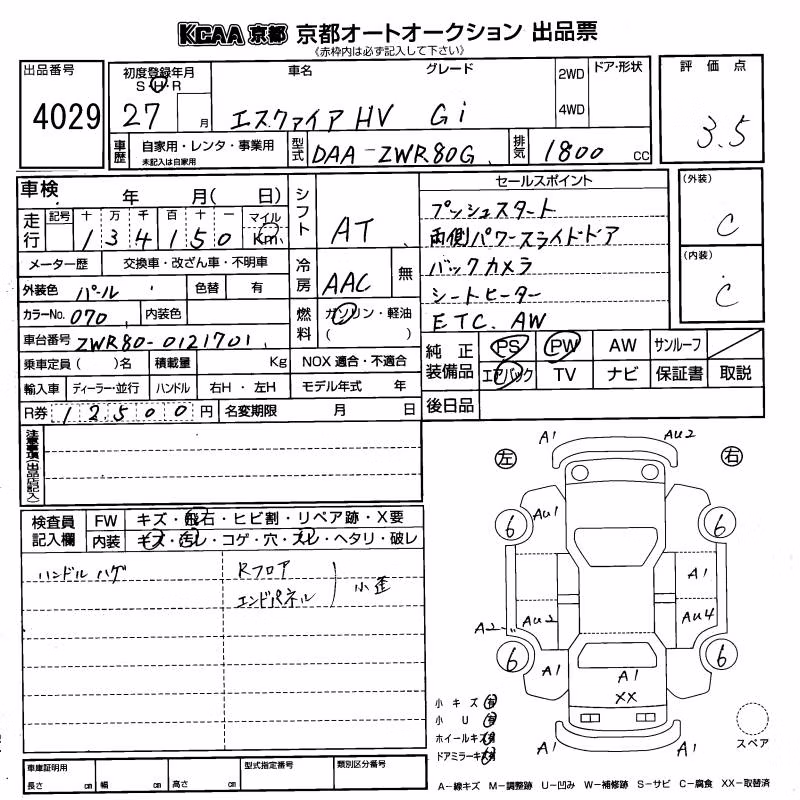 KCAA 京都 京都オートオークション 出品票
《赤枠内は必ず記入して下さい》
出品番号
4029
初度登録年月
S・H・R
27 月
車名 グレード
エスクァイア HV Gi
2WD
4WD
ドア・形状
評価点
3.5
車歴 自家用・レンタ・事業用
未記入は自家用
型式 DAA-ZWR80G
排気 1800 cc
車検 年 月( 日)
走行 記号 十 万 千 百 十 一 マイル
134150 Km
メーター歴 交換車・改ざん車・不明車
外装色 パール 色替 有
カラーNo. 070 内装色
車台番号 ZWR80-0121701
乗車定員( )名 積載量 Kg NOX 適合・不適合
輸入車 ディーラー・並行 ハンドル 右H・左H モデル年式 年
R券 12500円 名変期限 月 日
シフト AT
冷房 AAC 無
燃料 ガソリン・軽油
( )
セールスポイント
プッシュスタート
両側パワースライドドア
バックカメラ
シートヒーター
ETC. AW
(外装)
C
(内装)
C
純正装備品 PS PW AW サンルーフ
エアバック TV ナビ 保証書 取説
後日品
注意事項(出品店記入)
検査員記入欄 FW キズ・飛石・ヒビ割・リペア跡・X要
内装 キズ・汚レ・コゲ・穴・スレ・ヘタリ・破レ
ハンドルハゲ
Rフロア
エンドパネル
小歪
左 右
A1 AU2
6 AU1 6
A1
A2 AU2 AU4
6 A1 A1 6
XX
A1 A1
小キズ 有
小U 有
ホイールキズ 有
ドアミラーキズ 有
スペア
車庫証明用
長さ cm 幅 cm 高さ cm
型式指定番号 類別区分番号
A−線キズ M−調整跡 U−凹み W−補修跡 S−サビ C−腐食 XX−取替済